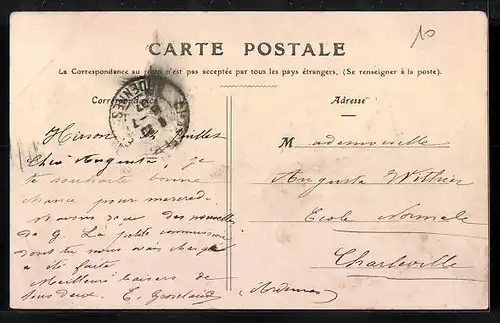 10
CARTE POSTALE
La Correspondance au recto n'est pas acceptée par tous les pays étrangers. (Se renseigner à la poste).
Correspondance
Adresse
ARDENNES
Hirson
Chère Augusta, je
te souhaite bonne
chance pour mercredi
des nouvelles
de G. La petite commission
dont tu nous avais chargé
a été faite.
Meilleurs baisers de
tous deux. E.
Mademoiselle
Augusta
Ecole Normale
Charleville
(Ardennes)